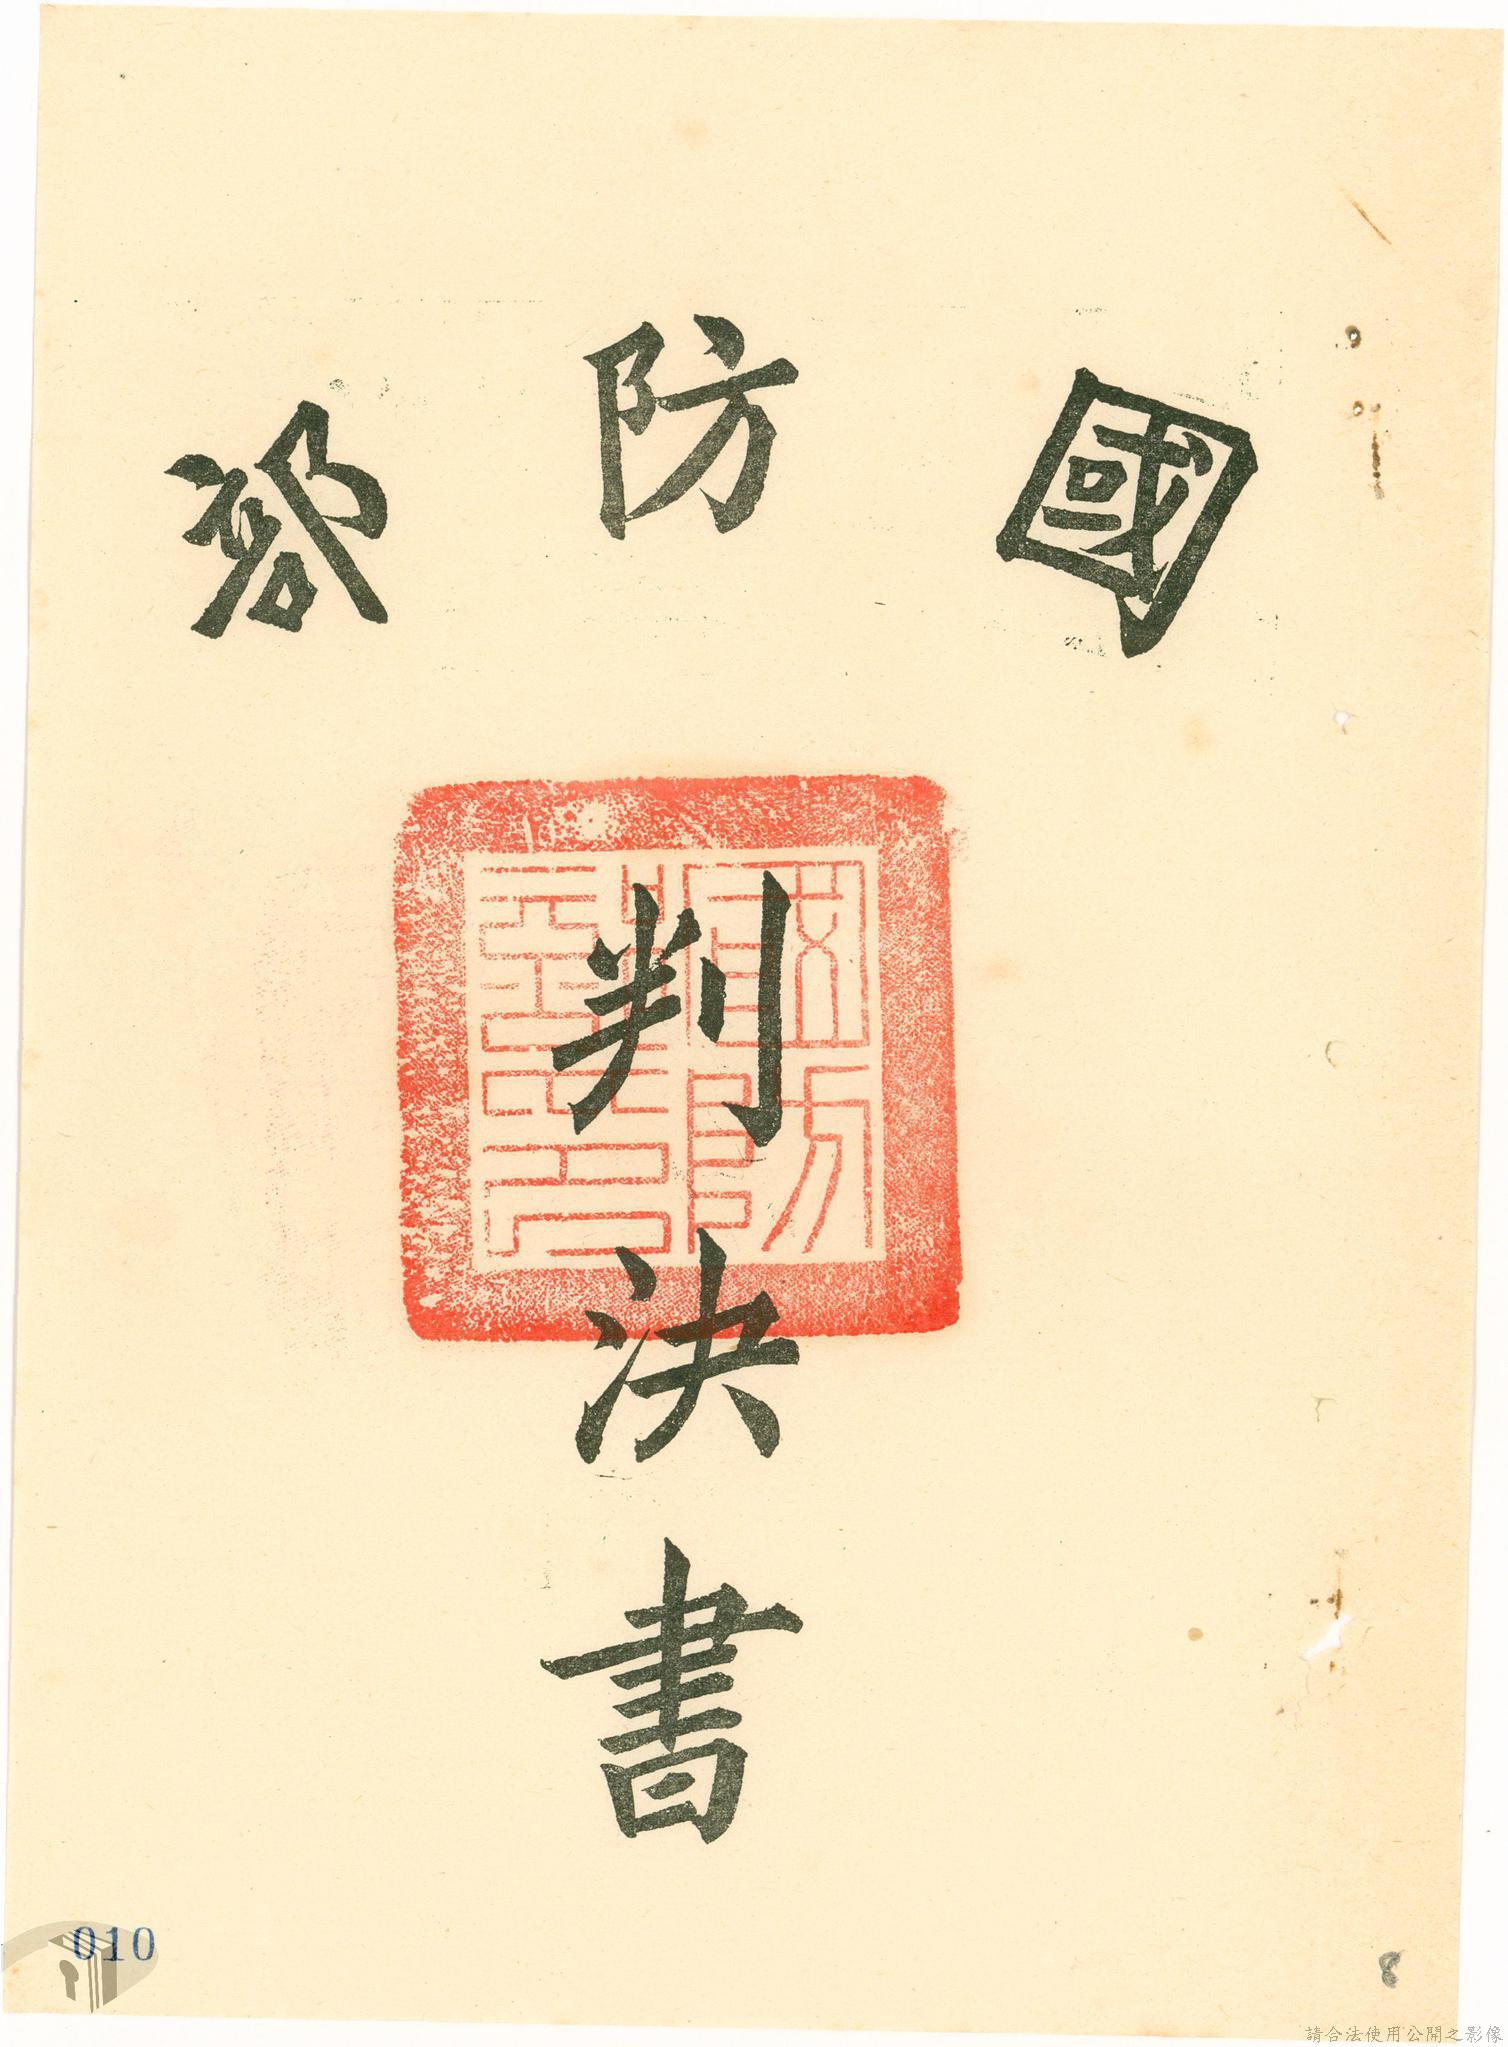 國防部
判決書
010
8
請合法使用公開之影像